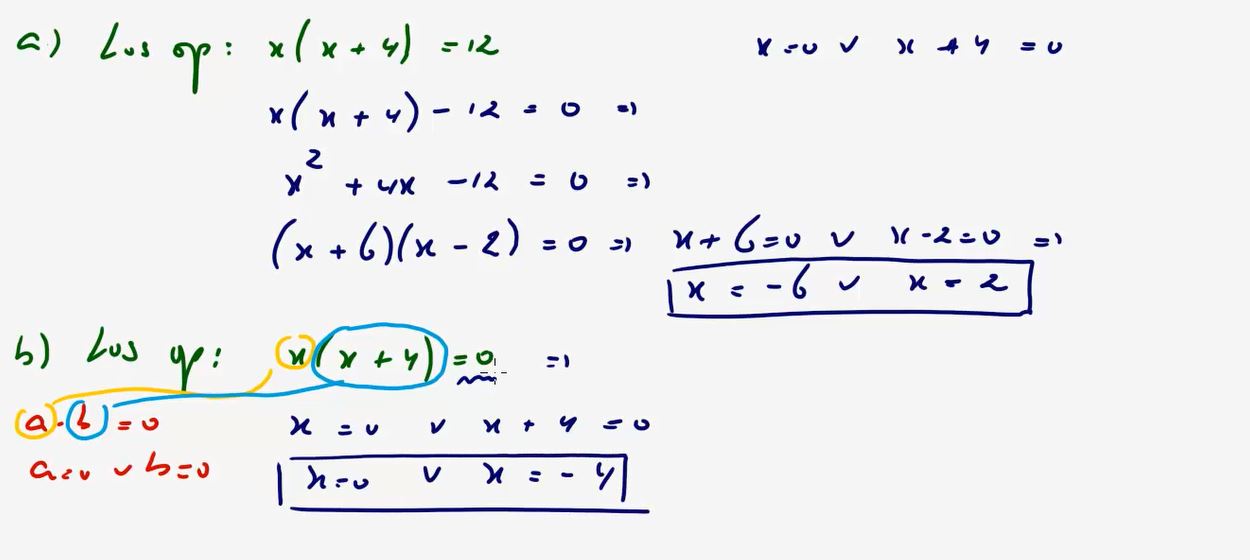 a) Los op: x(x+4) = 12
x = 0 ∨ x + 4 = 0
x(x+4) - 12 = 0 ⇒
x² + 4x - 12 = 0 ⇒
(x+6)(x-2) = 0 ⇒ x+6=0 ∨ x-2=0 ⇒
x = -6 ∨ x = 2
b) Los op: x(x+4) = 0 ⇒
a·b = 0
x = 0 ∨ x + 4 = 0
a=0 ∨ b=0
x=0 ∨ x = -4